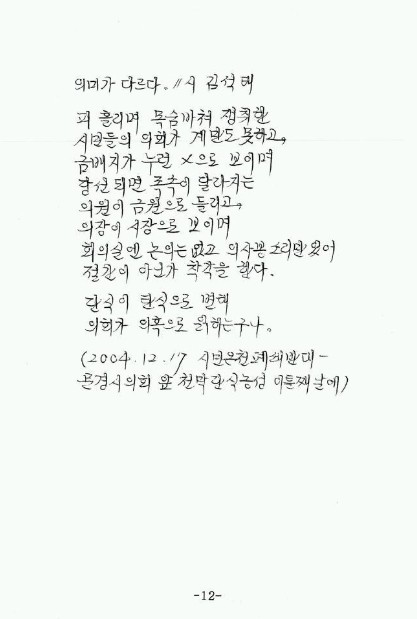 의미가 다르다. // 시 김석태
피 흘리며 목숨바쳐 쟁취한
시민들의 의회가 제발도 못하고,
금배지가 누런 ×으로 보이며
당선되면 족족이 달라지는
의원이 금원으로 들리고,
의장이 시장으로 보이며
회의실엔 논의는 없고 의사봉소리만 있어
절간이 아닌가 착각을 한다.
단식이 탄식으로 변해
의회가 의혹으로 읽히는구나.
(2004.12.17 시민온천폐쇄반대-
문경시의회 앞 천막단식농성 이튿째날에)
-12-